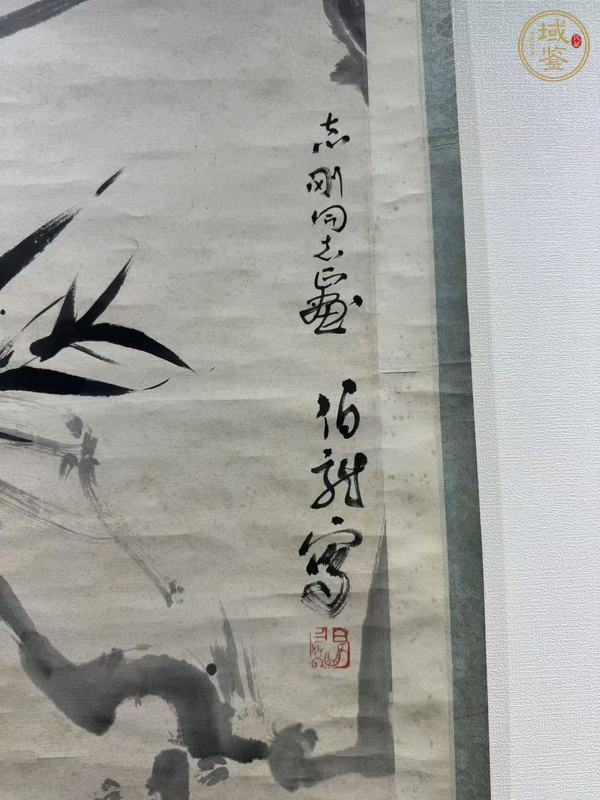 志刚同志正画
伯龍写
域鉴